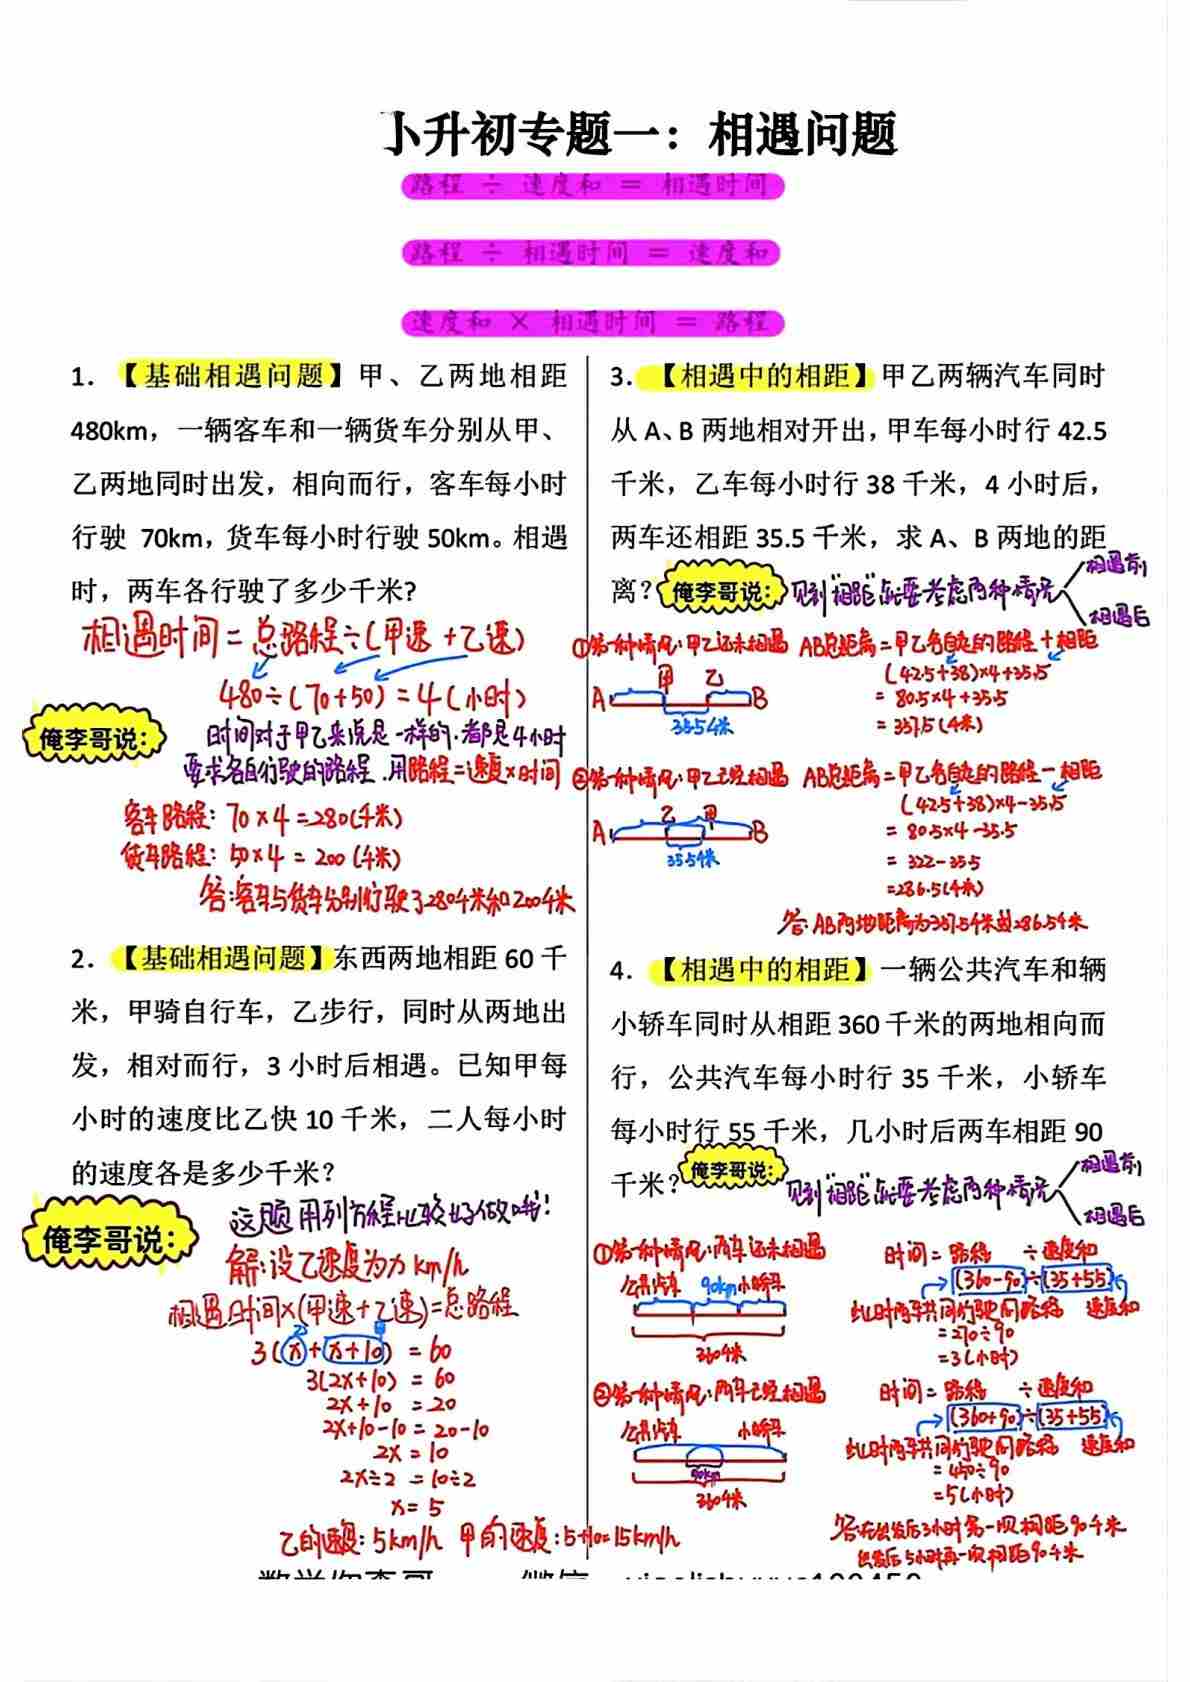 小升初专题一：相遇问题
路程 ÷ 速度和 = 相遇时间
路程 ÷ 相遇时间 = 速度和
速度和 × 相遇时间 = 路程
1. 【基础相遇问题】甲、乙两地相距
480km，一辆客车和一辆货车分别从甲、
乙两地同时出发，相向而行，客车每小时
行驶 70km，货车每小时行驶 50km。相遇
时，两车各行驶了多少千米?
相遇时间=总路程÷(甲速+乙速)
480÷(70+50)=4(小时)
俺李哥说:
时间对于甲乙来说是一样的.都是4小时
要求各自行驶的路程.用路程=速度×时间
客车路程: 70×4=280(千米)
货车路程: 50×4=200(千米)
答:客车与货车分别行驶了280千米和200千米
2. 【基础相遇问题】东西两地相距 60 千
米，甲骑自行车，乙步行，同时从两地出
发，相对而行，3 小时后相遇。已知甲每
小时的速度比乙快 10 千米，二人每小时
的速度各是多少千米？
俺李哥说:
这题用列方程比较好做哦!
解:设乙速度为x km/h
相遇时间×(甲速+乙速)=总路程
乙 甲
3(x+x+10)=60
3(2x+10)=60
2x+10=20
2x+10-10=20-10
2x=10
2x÷2=10÷2
x=5
乙的速度: 5km/h 甲的速度:5+10=15km/h
3. 【相遇中的相距】甲乙两辆汽车同时
从 A、B 两地相对开出，甲车每小时行 42.5
千米，乙车每小时行 38 千米，4 小时后，
两车还相距 35.5 千米，求 A、B 两地的距
离？
俺李哥说:
见到"相距"就要考虑两种情况
相遇前
相遇后
①第一种情况:甲乙还未相遇 AB总距离=甲乙各自走的路程+相距
(42.5+38)×4+35.5
甲 乙
A B
=80.5×4+35.5
35.5千米
=357.5(千米)
②第一种情况:甲乙已经相遇 AB总距离=甲乙各自走的路程-相距
(42.5+38)×4-35.5
乙 甲
A B
=80.5×4-35.5
35.5千米
=322-35.5
=286.5(千米)
答:AB两地距离为357.5千米或286.5千米
4. 【相遇中的相距】一辆公共汽车和辆
小轿车同时从相距 360 千米的两地相向而
行，公共汽车每小时行 35 千米，小轿车
每小时行 55 千米，几小时后两车相距 90
千米？
俺李哥说:
见到"相距"就要考虑两种情况
相遇前
相遇后
①第一种情况:两车还未相遇 时间=路程÷速度和
公共汽车 90km 小轿车
(360-90)÷(35+55)
此时两车共同行驶的路程 速度和
=270÷90
360千米
=3(小时)
②第一种情况:两车已经相遇 时间=路程÷速度和
公共汽车 小轿车
(360+90)÷(35+55)
此时两车共同行驶的路程 速度和
90km
=450÷90
360千米
=5(小时)
答:在出发后3小时第一次相距90千米
出发后5小时再一次相距90千米